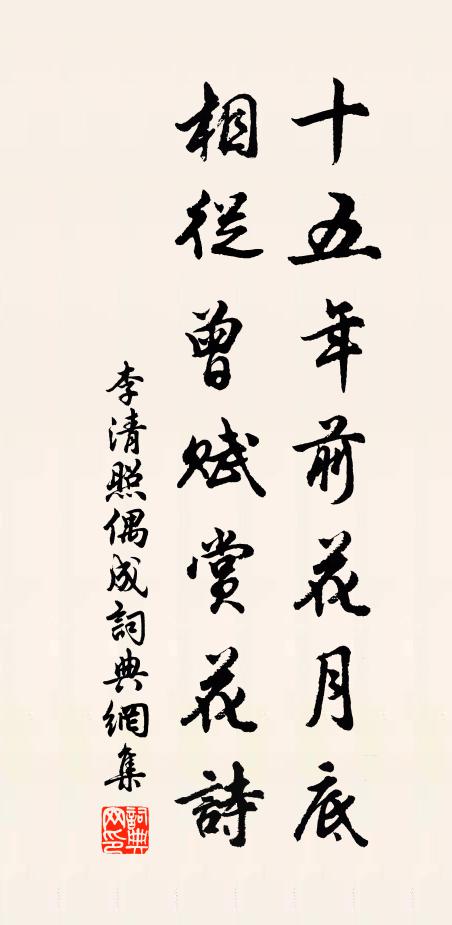 十五年前花月底
相從曾賦賞花詩
李清照偶成詞典網集
詞典網印